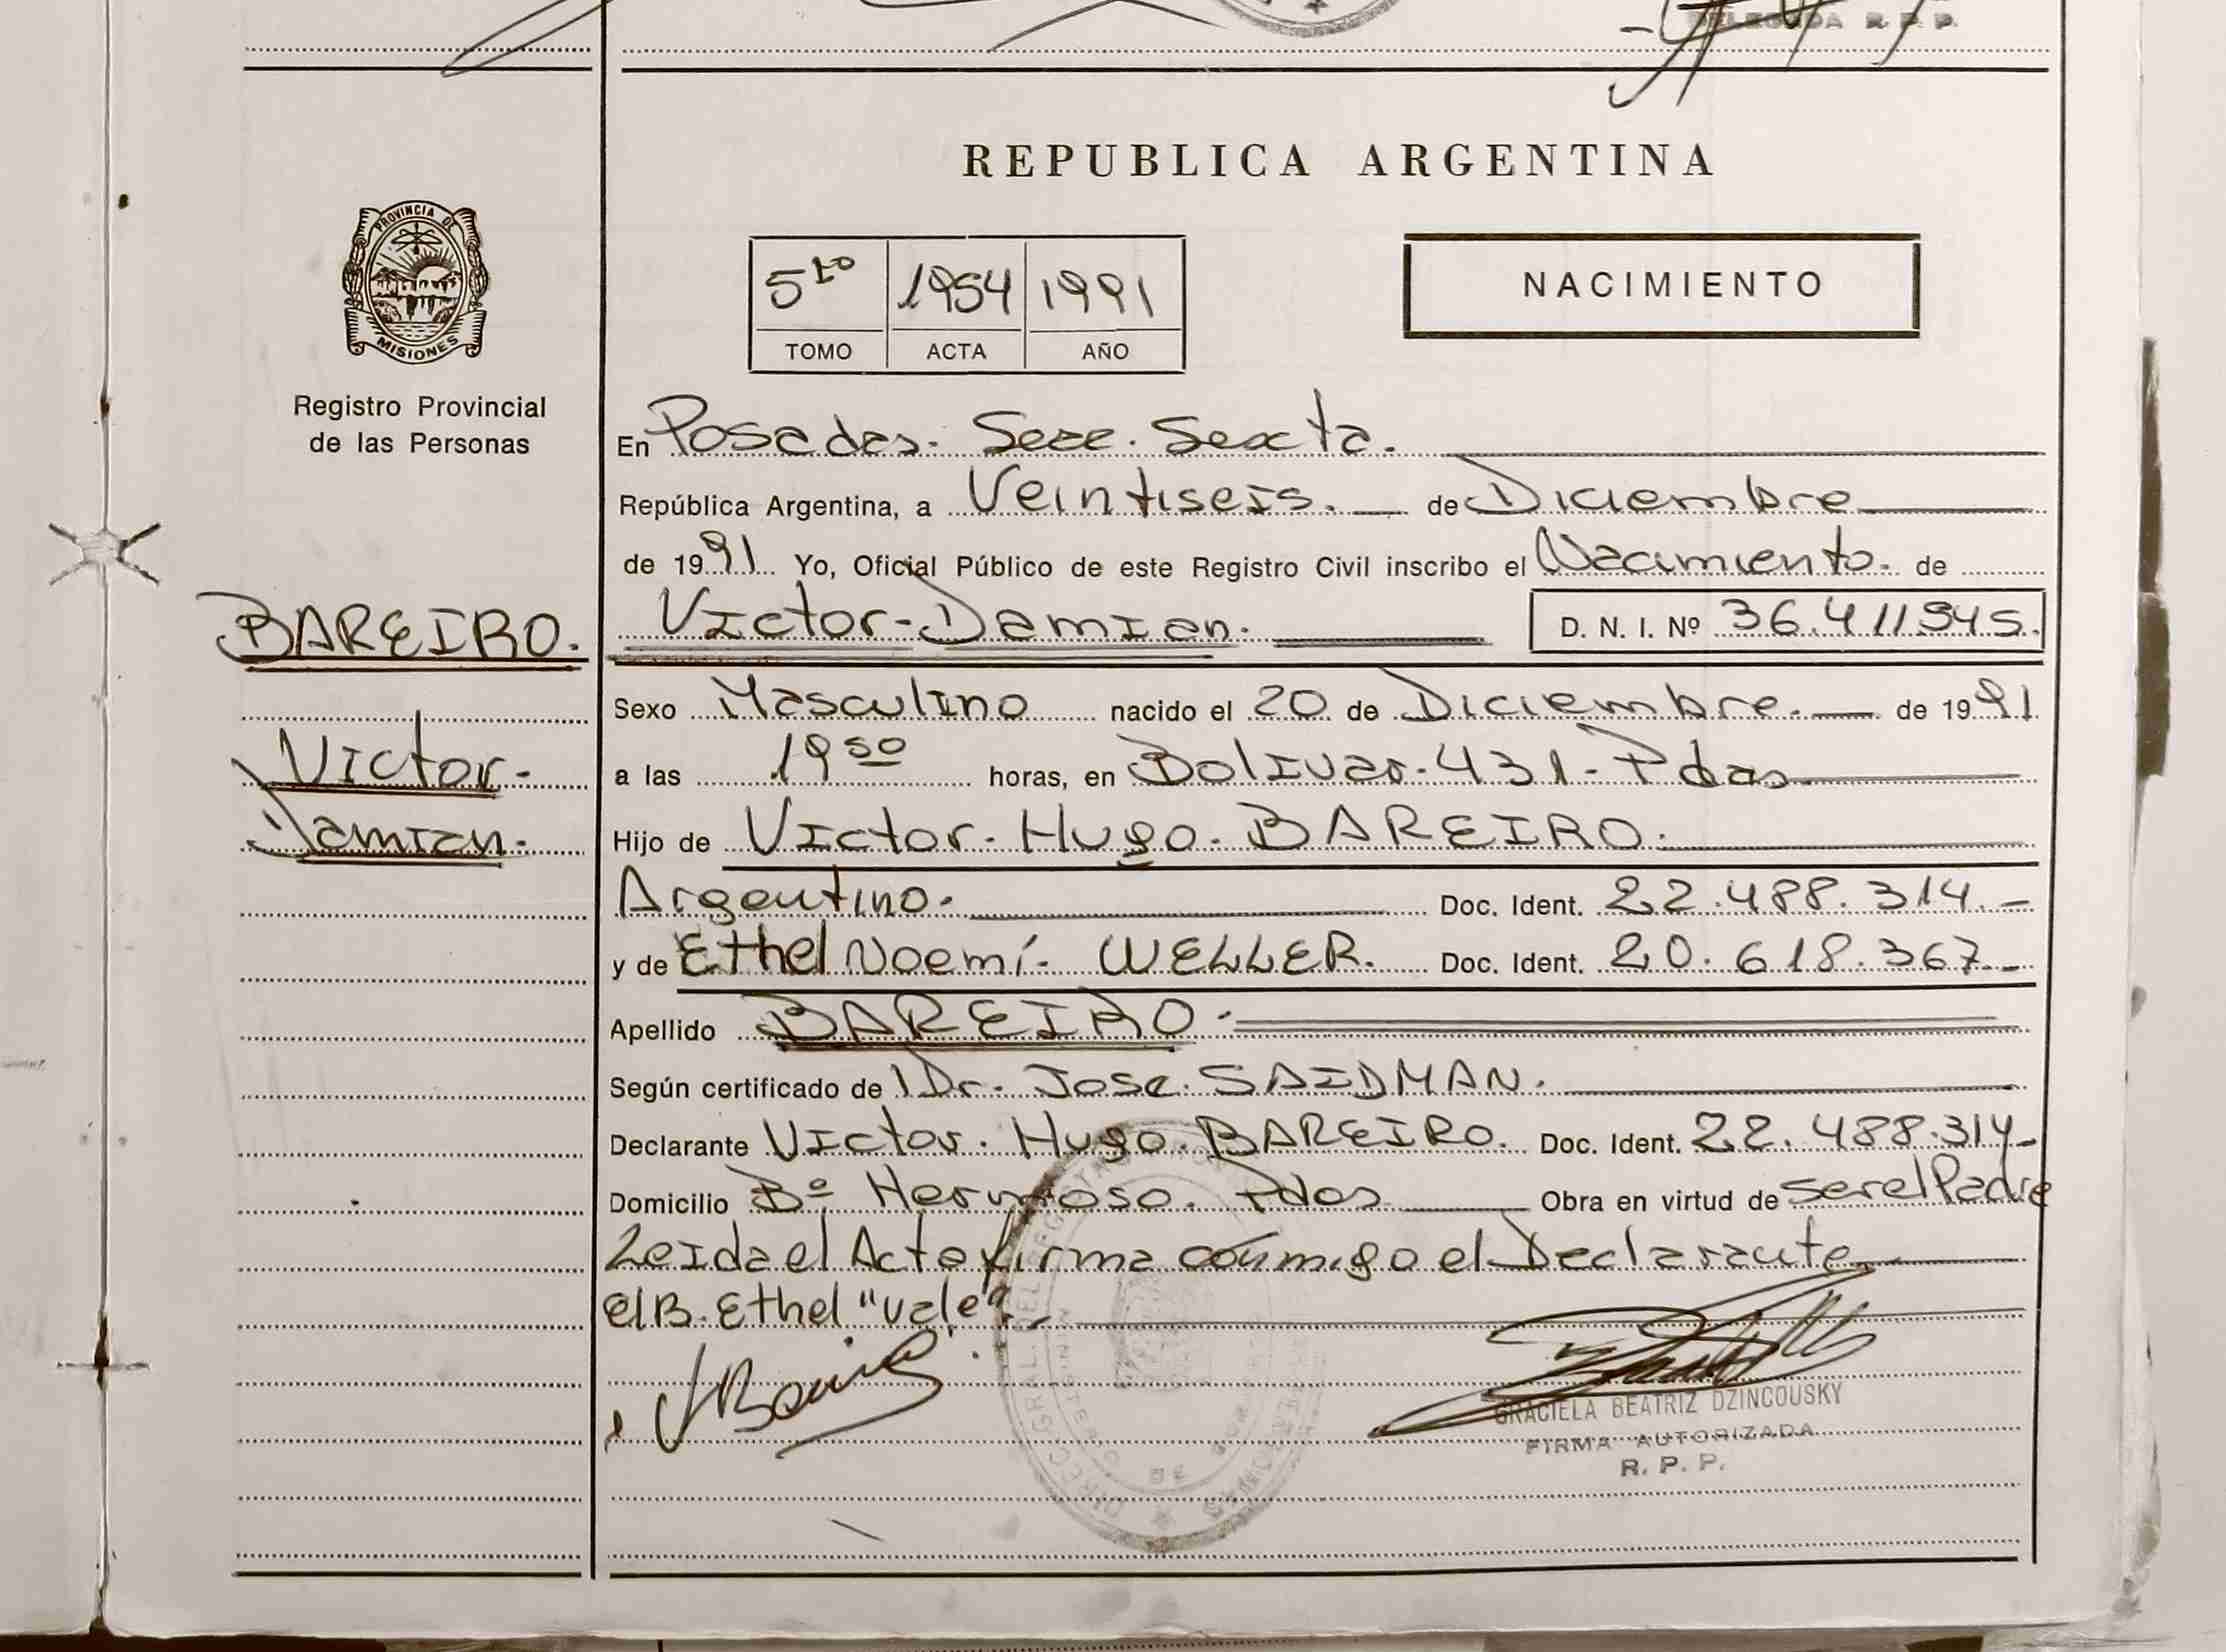 DELEGADA R. P. P.
REPUBLICA ARGENTINA
PROVINCIA DE
MISIONES
Registro Provincial
de las Personas
5to 1954 1991
TOMO ACTA AÑO
NACIMIENTO
En Posadas. Secc. Sexta.
República Argentina, a Veintiseis. de Diciembre
de 1991 Yo, Oficial Público de este Registro Civil inscribo el Nacimiento. de
BAREIRO.
Victor-Damian. D. N. I. Nº 36.411.545.
Sexo Masculino nacido el 20 de Diciembre. de 1991
Victor-
a las 19 50 horas, en Bolivar. 431 - Pdas
Damian.
Hijo de Victor. Hugo. BAREIRO.
Argentino. Doc. Ident. 22.488.314.-
y de Ethel Noemí. WELLER. Doc. Ident. 20.618.367.-
Apellido BAREIRO.
Según certificado de Dr. Jose. SAIDMAN.
Declarante Victor. Hugo. BAREIRO. Doc. Ident. 22.488.314-
Domicilio Bº Hermoso. Pdas Obra en virtud de ser el Padre
Leida el Acta firma conmigo el Declarante
el B. Ethel "vale".
GRACIELA BEATRIZ DZINCOUSKY
FIRMA AUTORIZADA
R. P. P.